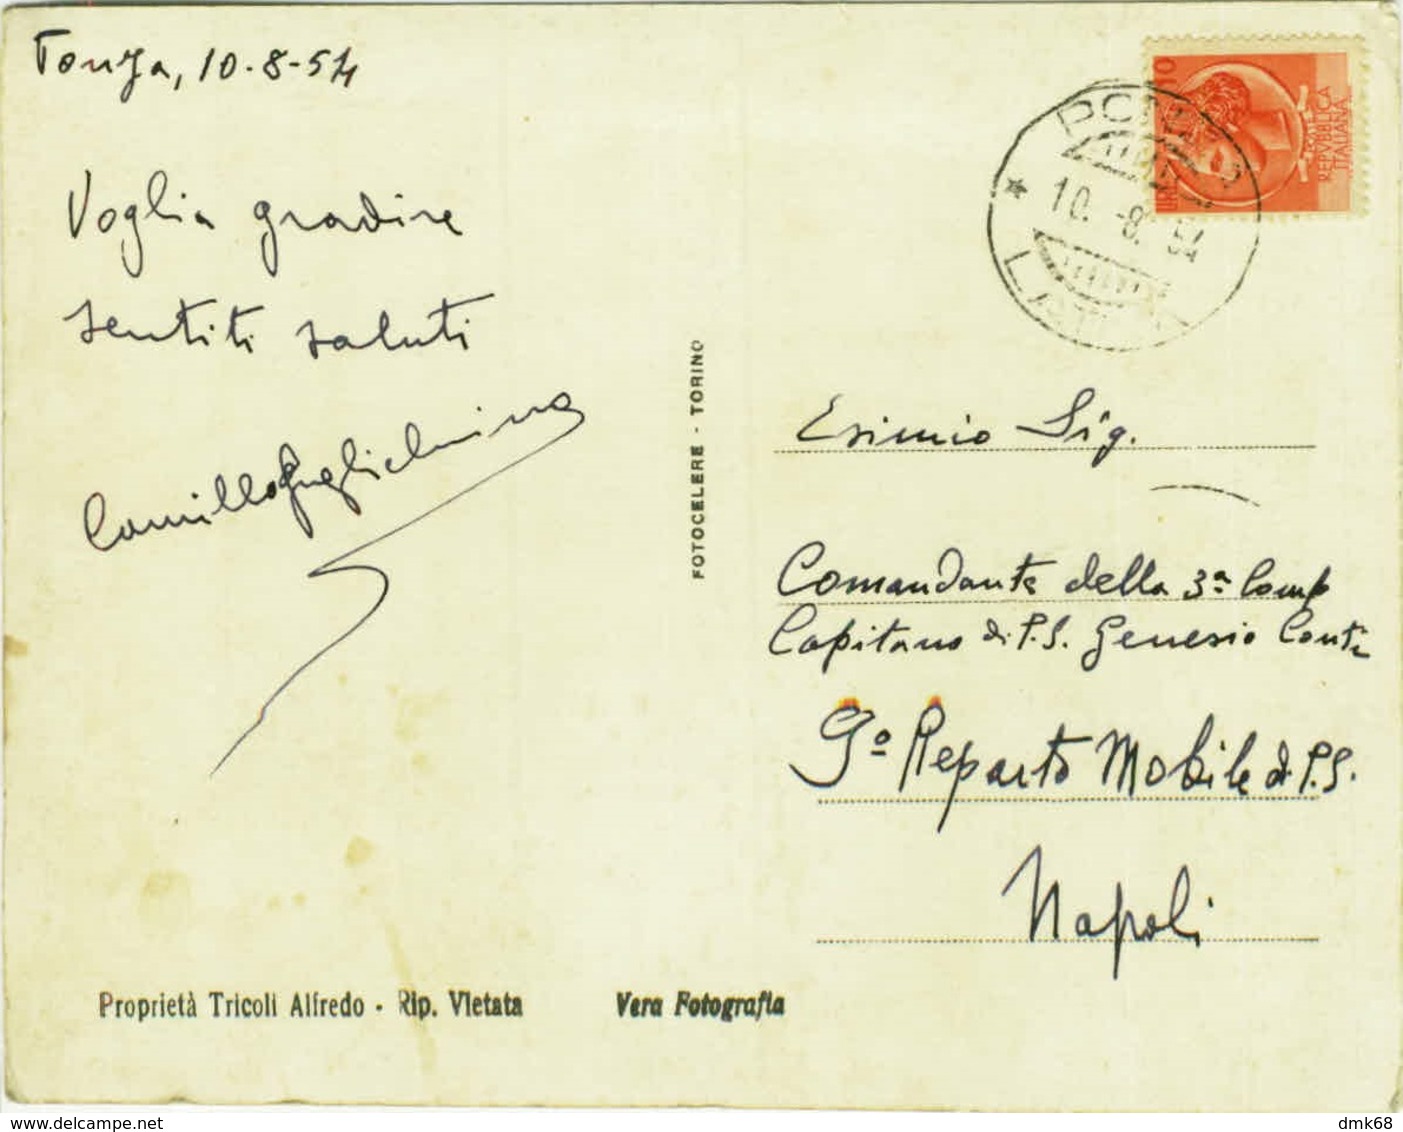 Ponza, 10-8-54
Voglia gradire
sentiti saluti
Camillo Guglielmino
FOTOCELERE - TORINO
Proprietà Tricoli Alfredo - Rip. Vietata
Vera Fotografia
10
REPVBBLICA
ITALIANA
10. -8. 54
LATINA
Esimio Sig.
Comandante della 3ª Comp
Capitano di P.S. Genesio Conti
9º Reparto Mobile di P.S.
Napoli
dmk68